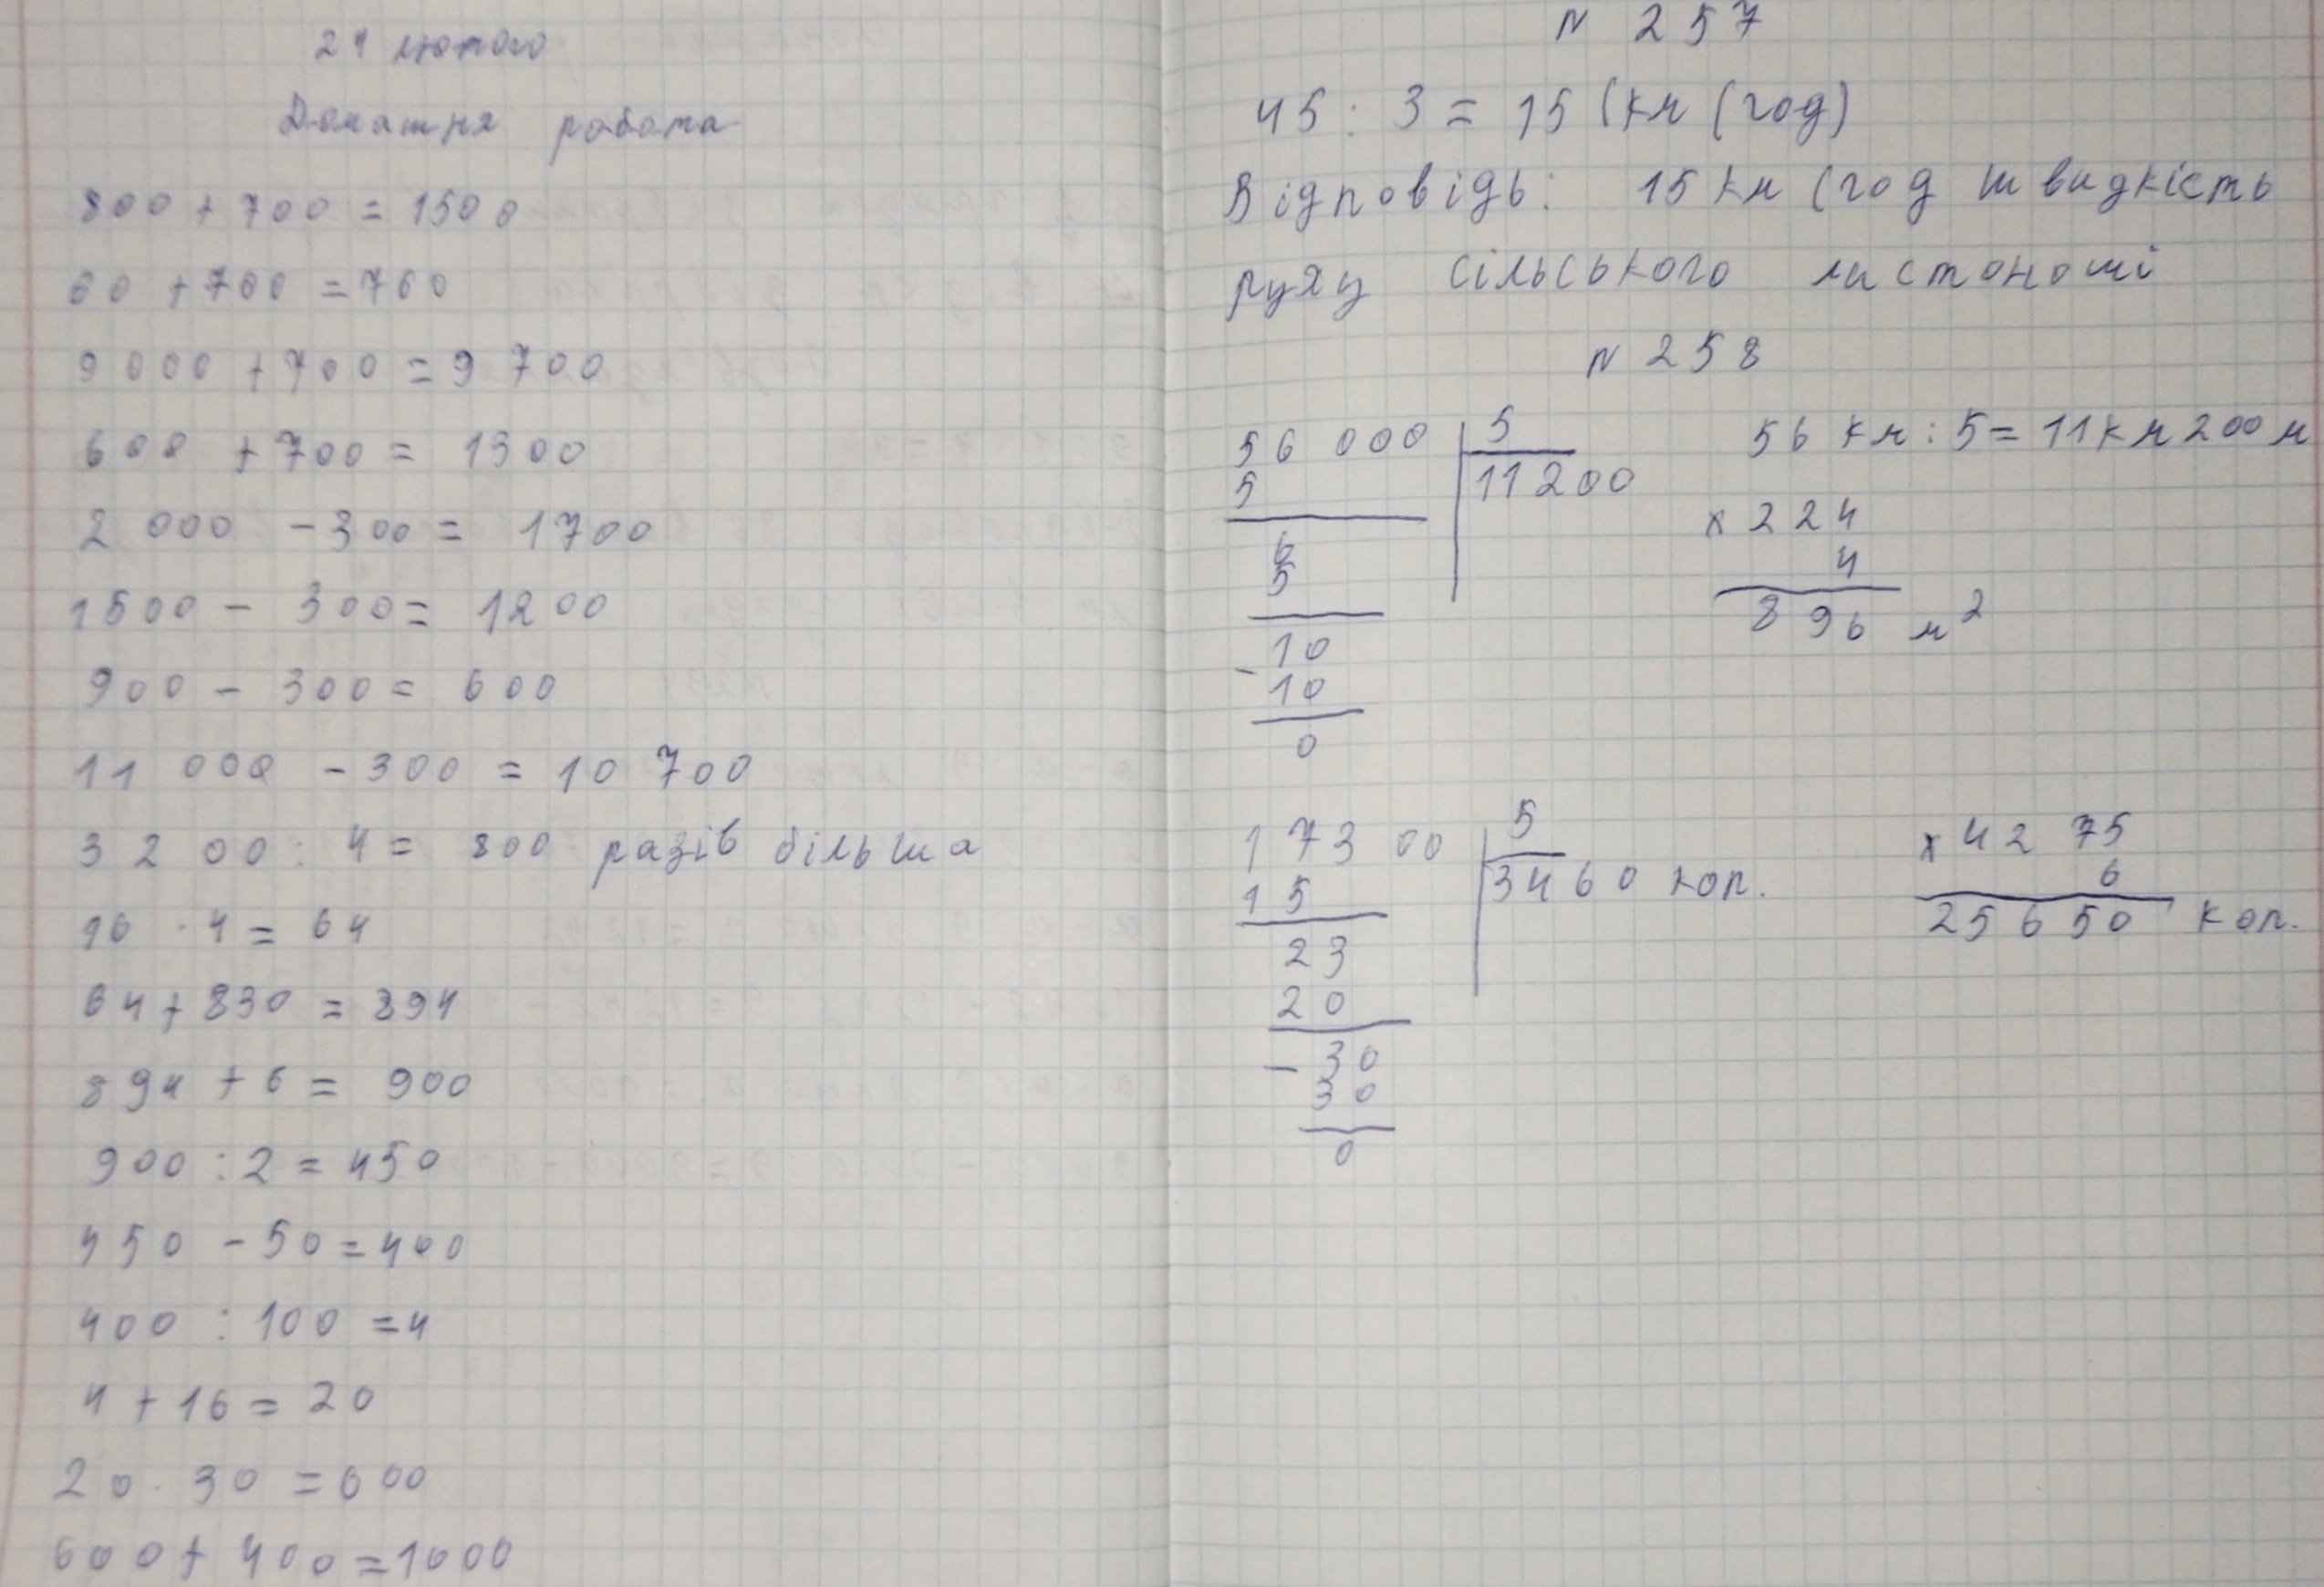 24 лютого
Домашня робота
800 + 700 = 1500
60 + 700 = 760
9 000 + 700 = 9 700
600 + 700 = 1300
2 000 - 300 = 1700
1500 - 300 = 1200
900 - 300 = 600
11 000 - 300 = 10 700
3 200 : 4 = 800 разів більша
16 · 4 = 64
64 + 830 = 894
894 + 6 = 900
900 : 2 = 450
450 - 50 = 400
400 : 100 = 4
4 + 16 = 20
20 · 30 = 600
600 + 400 = 1000
N 257
45 : 3 = 15 (км (год)
Відповідь: 15 км (год швидкість
руху сільського листоноші
N 258
56 000 5
5 11200
6
5
10
- 10
0
56 км : 5 = 11 км 200 м
x 224
4
896 м²
173 00 5
15 3460 коп.
23
20
- 30
30
0
x 42 75
6
25 6 50 коп.